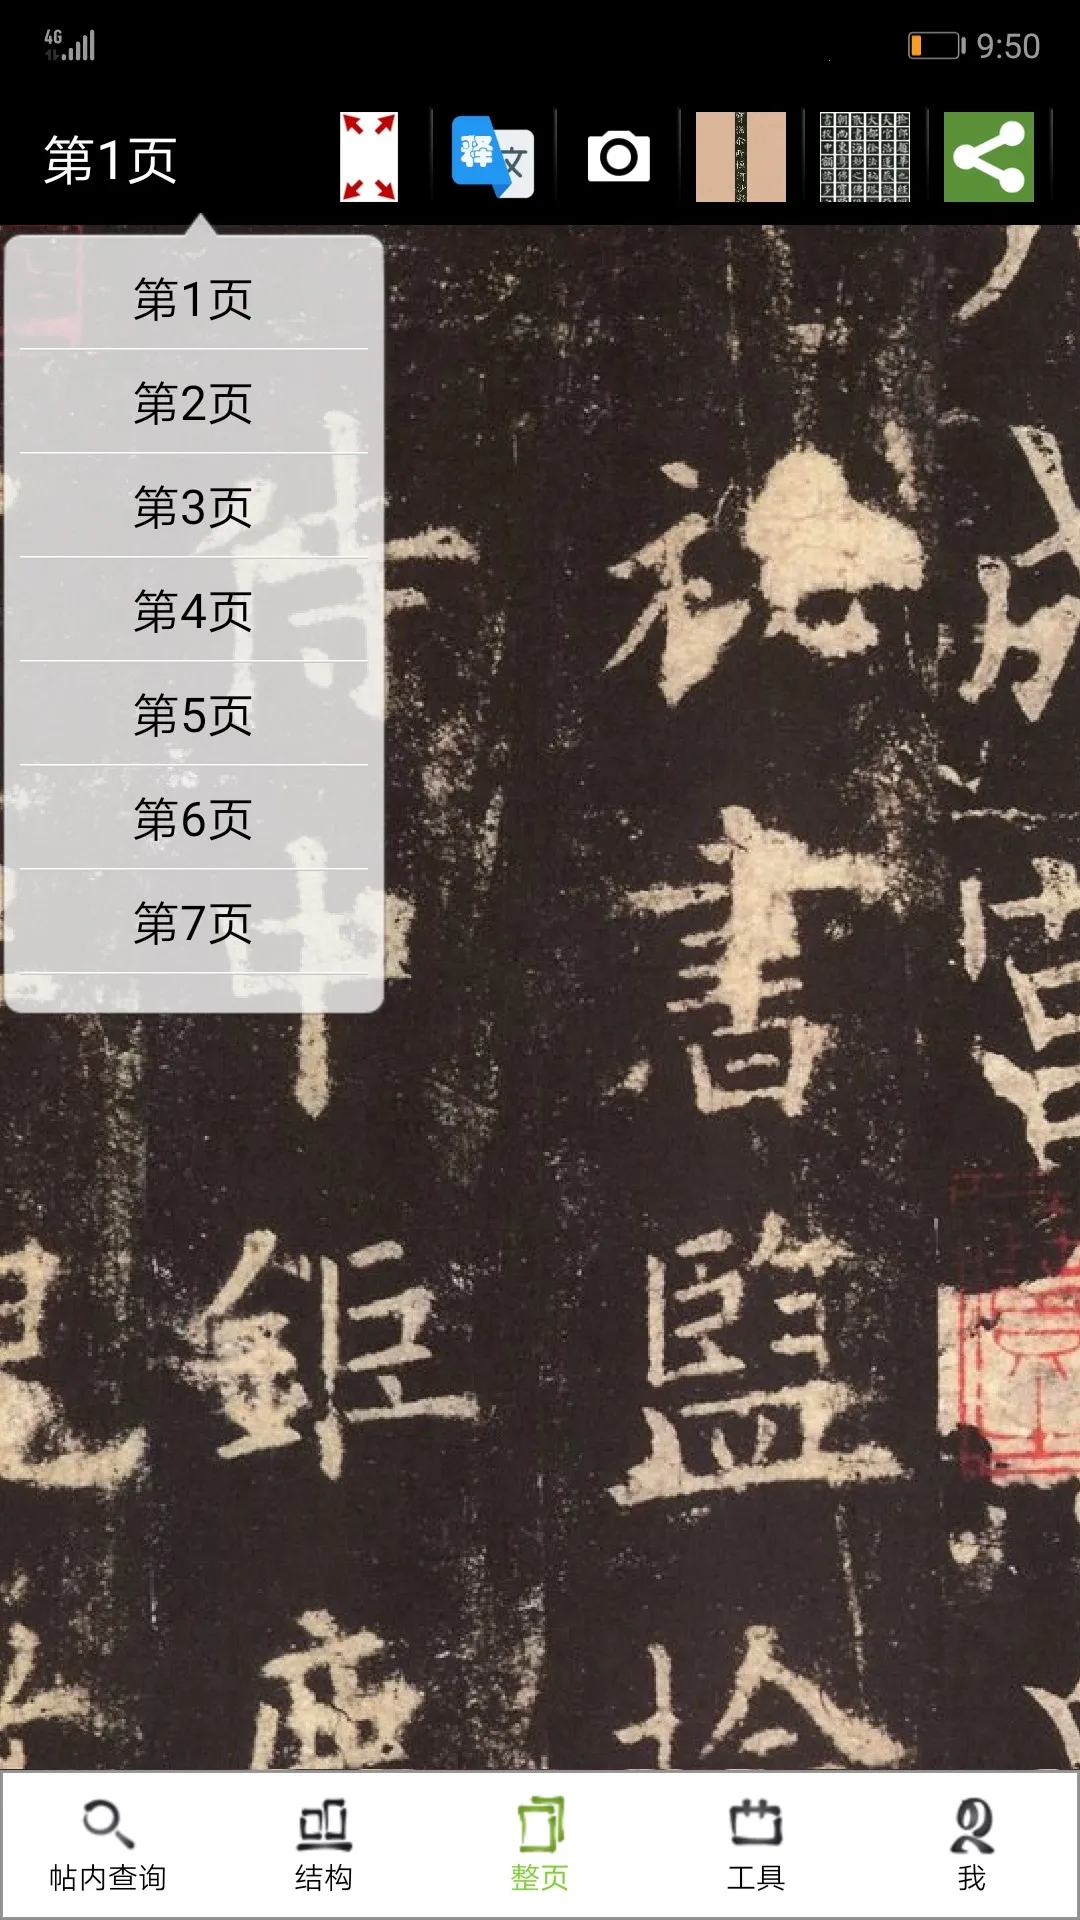 4G
9:50
第1页
释
文
第1页
第2页
第3页
第4页
第5页
第6页
第7页
秘
書
監
撿
侍
中
鉅
鹿
帖内查询
结构
整页
工具
我